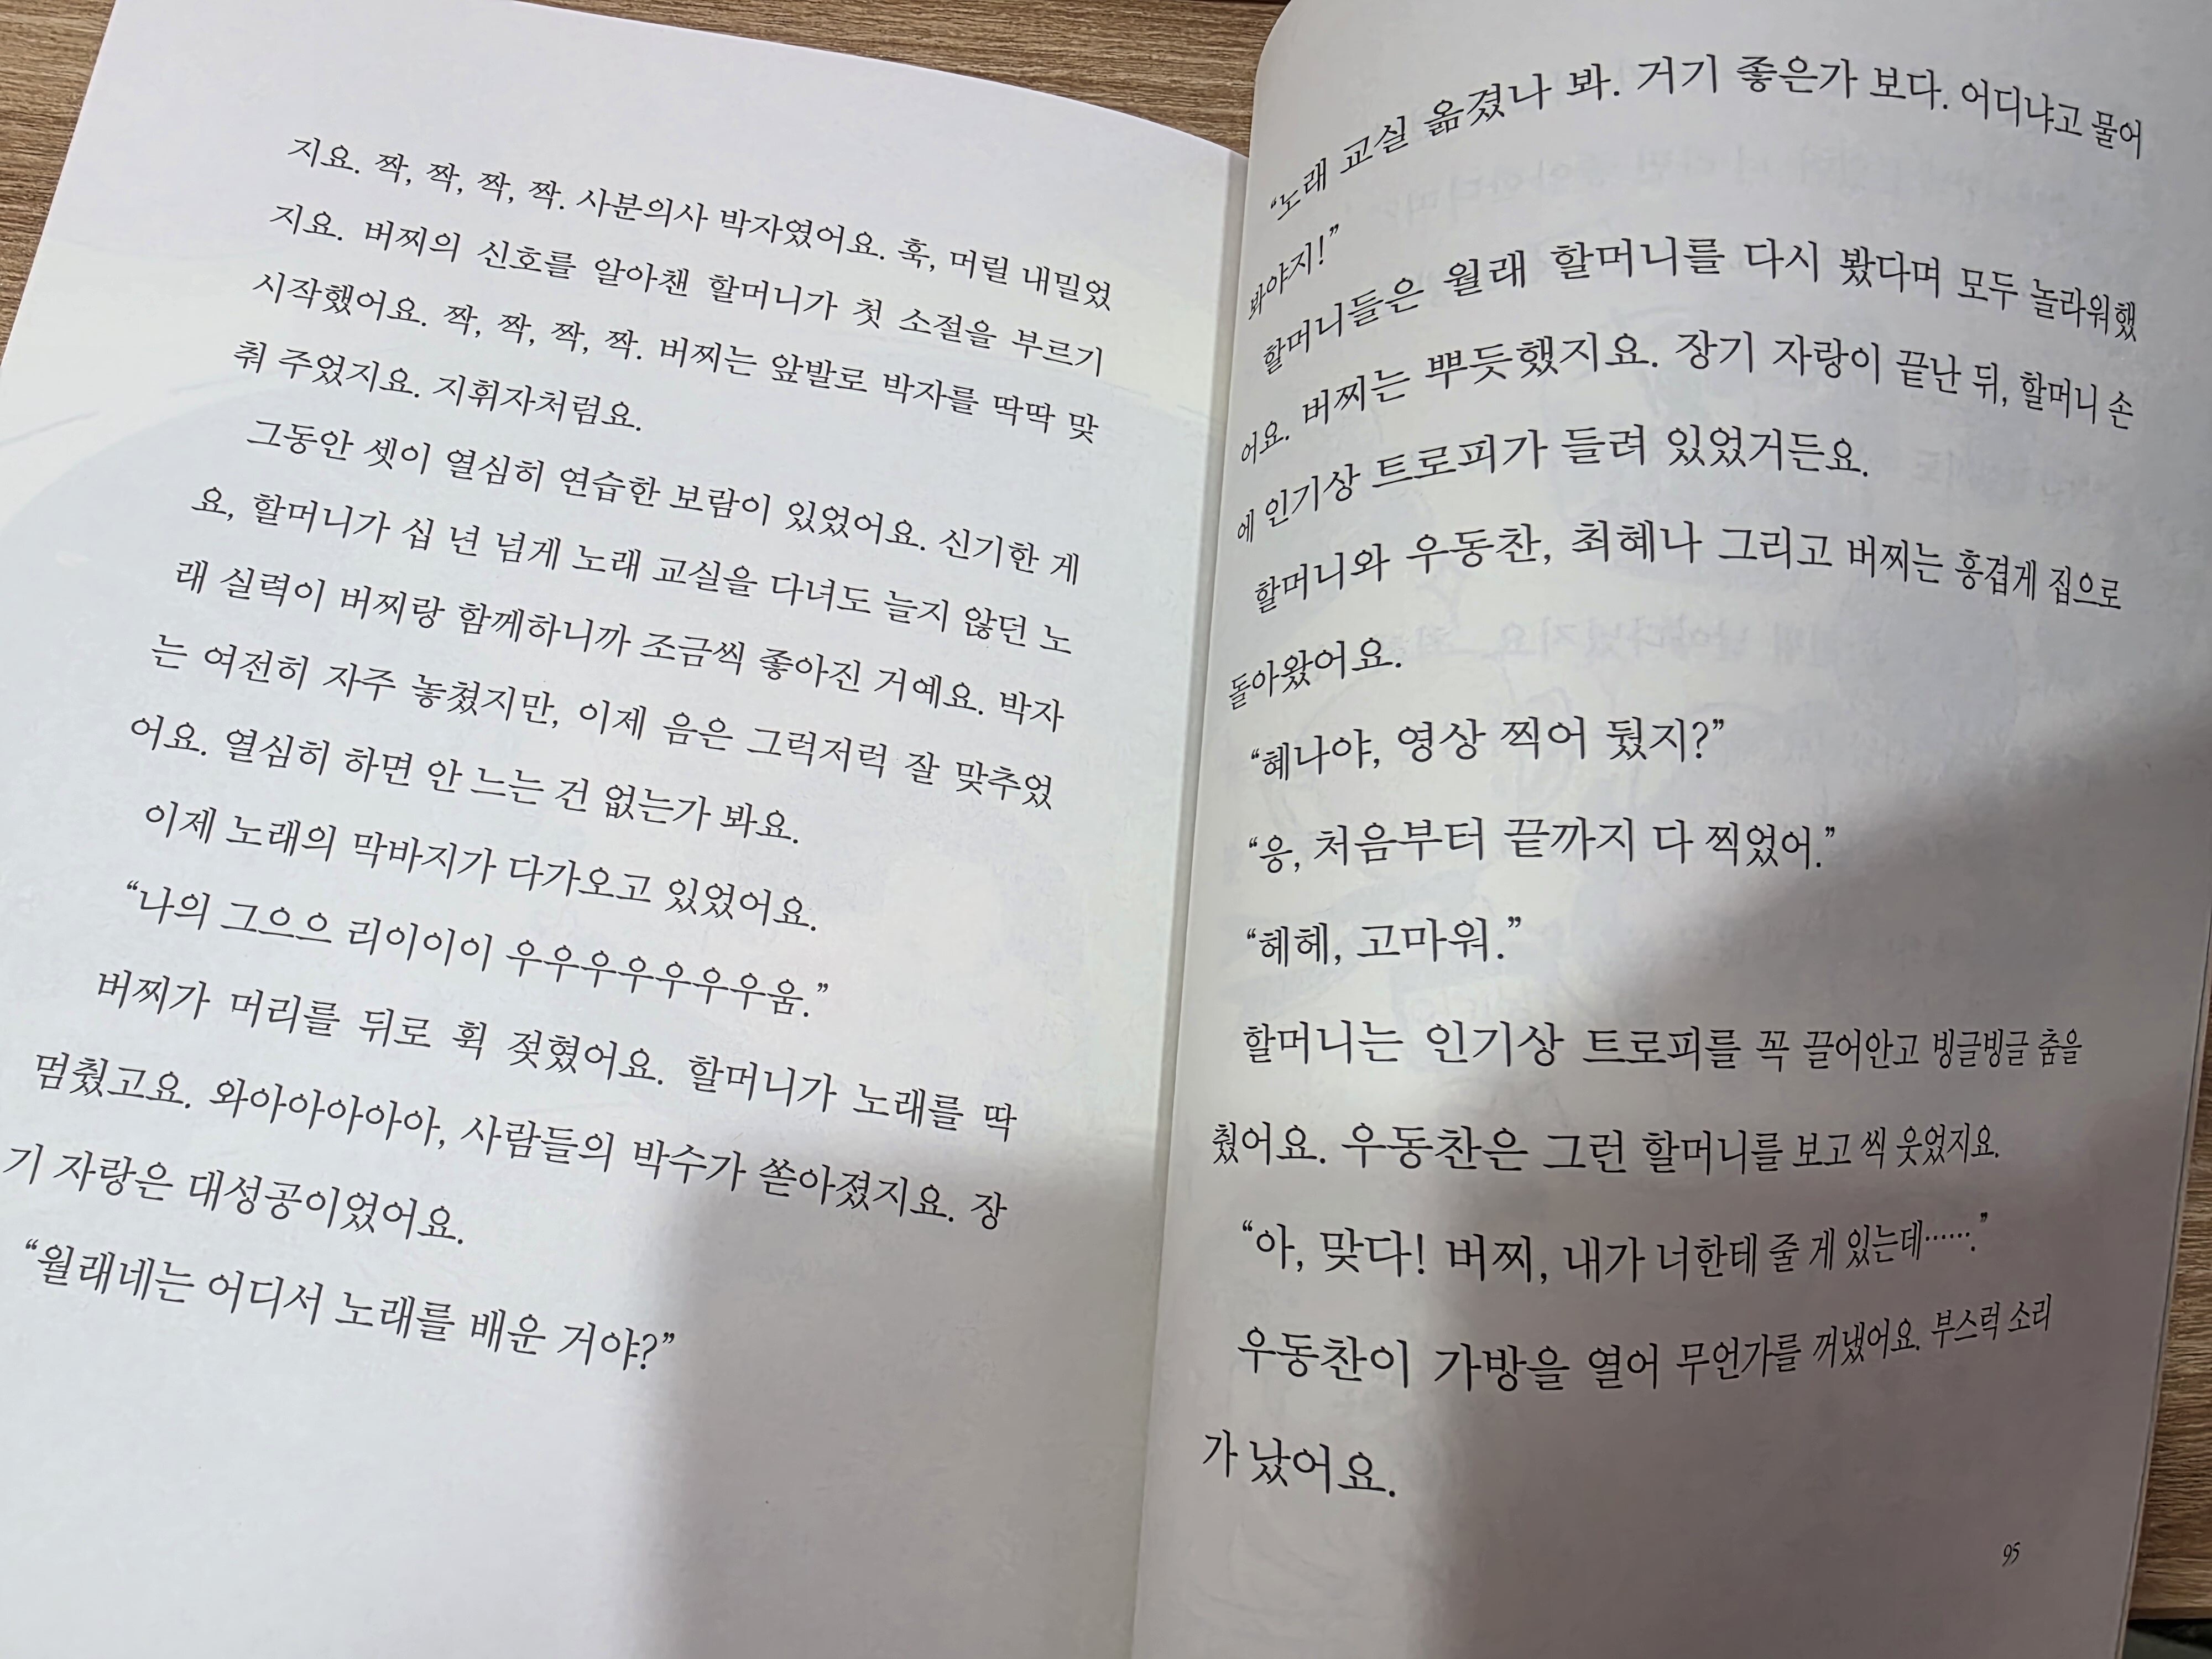 지요. 짝, 짝, 짝, 짝. 사분의사 박자였어요. 훅, 머릴 내밀었
지요. 버찌의 신호를 알아챈 할머니가 첫 소절을 부르기
시작했어요. 짝, 짝, 짝, 짝. 버찌는 앞발로 박자를 딱딱 맞
춰 주었지요. 지휘자처럼요.
그동안 셋이 열심히 연습한 보람이 있었어요. 신기한 게
요, 할머니가 십 년 넘게 노래 교실을 다녀도 늘지 않던 노
래 실력이 버찌랑 함께하니까 조금씩 좋아진 거예요. 박자
는 여전히 자주 놓쳤지만, 이제 음은 그럭저럭 잘 맞추었
어요. 열심히 하면 안 느는 건 없는가 봐요.
이제 노래의 막바지가 다가오고 있었어요.
“나의 그으으 리이이이 우우우우우우우움.”
버찌가 머리를 뒤로 휙 젖혔어요. 할머니가 노래를 딱
멈췄고요. 와아아아아아, 사람들의 박수가 쏟아졌지요. 장
기 자랑은 대성공이었어요.
“월래네는 어디서 노래를 배운 거야?”
“노래 교실 옮겼나 봐. 거기 좋은가 보다. 어디냐고 물어
봐야지!”
할머니들은 월래 할머니를 다시 봤다며 모두 놀라워했
어요. 버찌는 뿌듯했지요. 장기 자랑이 끝난 뒤, 할머니 손
에 인기상 트로피가 들려 있었거든요.
할머니와 우동찬, 최혜나 그리고 버찌는 흥겹게 집으로
돌아왔어요.
“혜나야, 영상 찍어 뒀지?”
“응, 처음부터 끝까지 다 찍었어.”
“헤헤, 고마워.”
할머니는 인기상 트로피를 꼭 끌어안고 빙글빙글 춤을
췄어요. 우동찬은 그런 할머니를 보고 씩 웃었지요.
“아, 맞다! 버찌, 내가 너한테 줄 게 있는데…….”
우동찬이 가방을 열어 무언가를 꺼냈어요. 부스럭 소리
가 났어요.
95